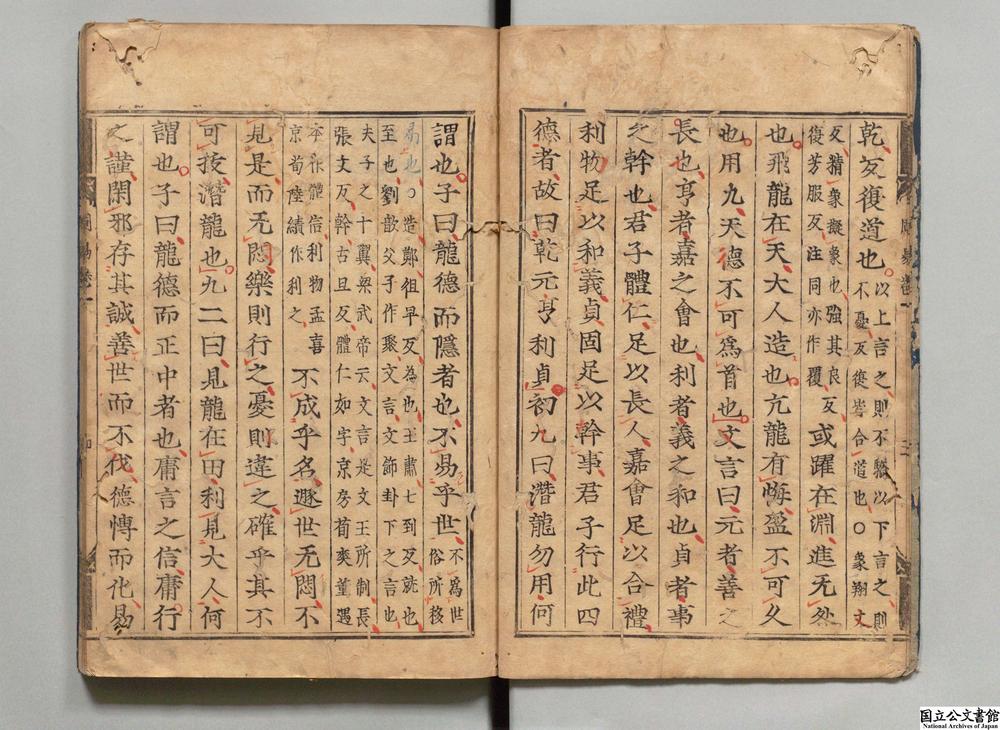 乾反復道也以上言之則不驕以下言之則
不憂反復皆合道也○象翔丈
反精象擬象也強其良反
復芳服反注同亦作覆或躍在淵進无咎
也飛龍在天大人造也亢龍有悔盈不可久
也用九天德不可爲首也文言曰元者善之
長也亨者嘉之會也利者義之和也貞者事
之幹也君子體仁足以長人嘉會足以合禮
利物足以和義貞固足以幹事君子行此四
德者故曰乾元亨利貞初九曰潛龍勿用何
謂也子曰龍德而隱者也不易乎世不爲世
俗所移
易也○造鄭徂早反為也王肅七到反就也
至也劉歆父子作聚文言文飾卦下之言也
夫子之十翼梁武帝云文言是文王所制長
張丈反幹古旦反體仁如字京房荀爽董遇
本作體信利物孟喜
京荀陸績作利之不成乎名遯世无悶不
見是而无悶樂則行之憂則違之確乎其不
可拔潛龍也九二曰見龍在田利見大人何
謂也子曰龍德而正中者也庸言之信庸行
之謹閑邪存其誠善世而不伐德博而化易
国立公文書館
National Archives of Japan